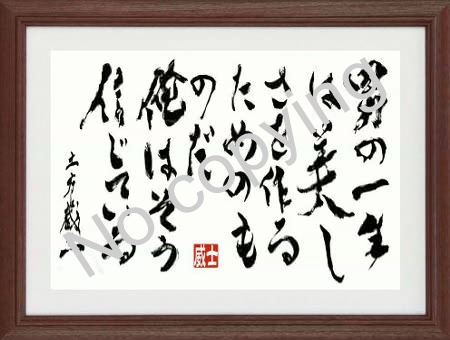 男の一生
は美し
さを作る
ためのも
のだ。
俺はそう
信じている
土方歳三
威士
No-copying